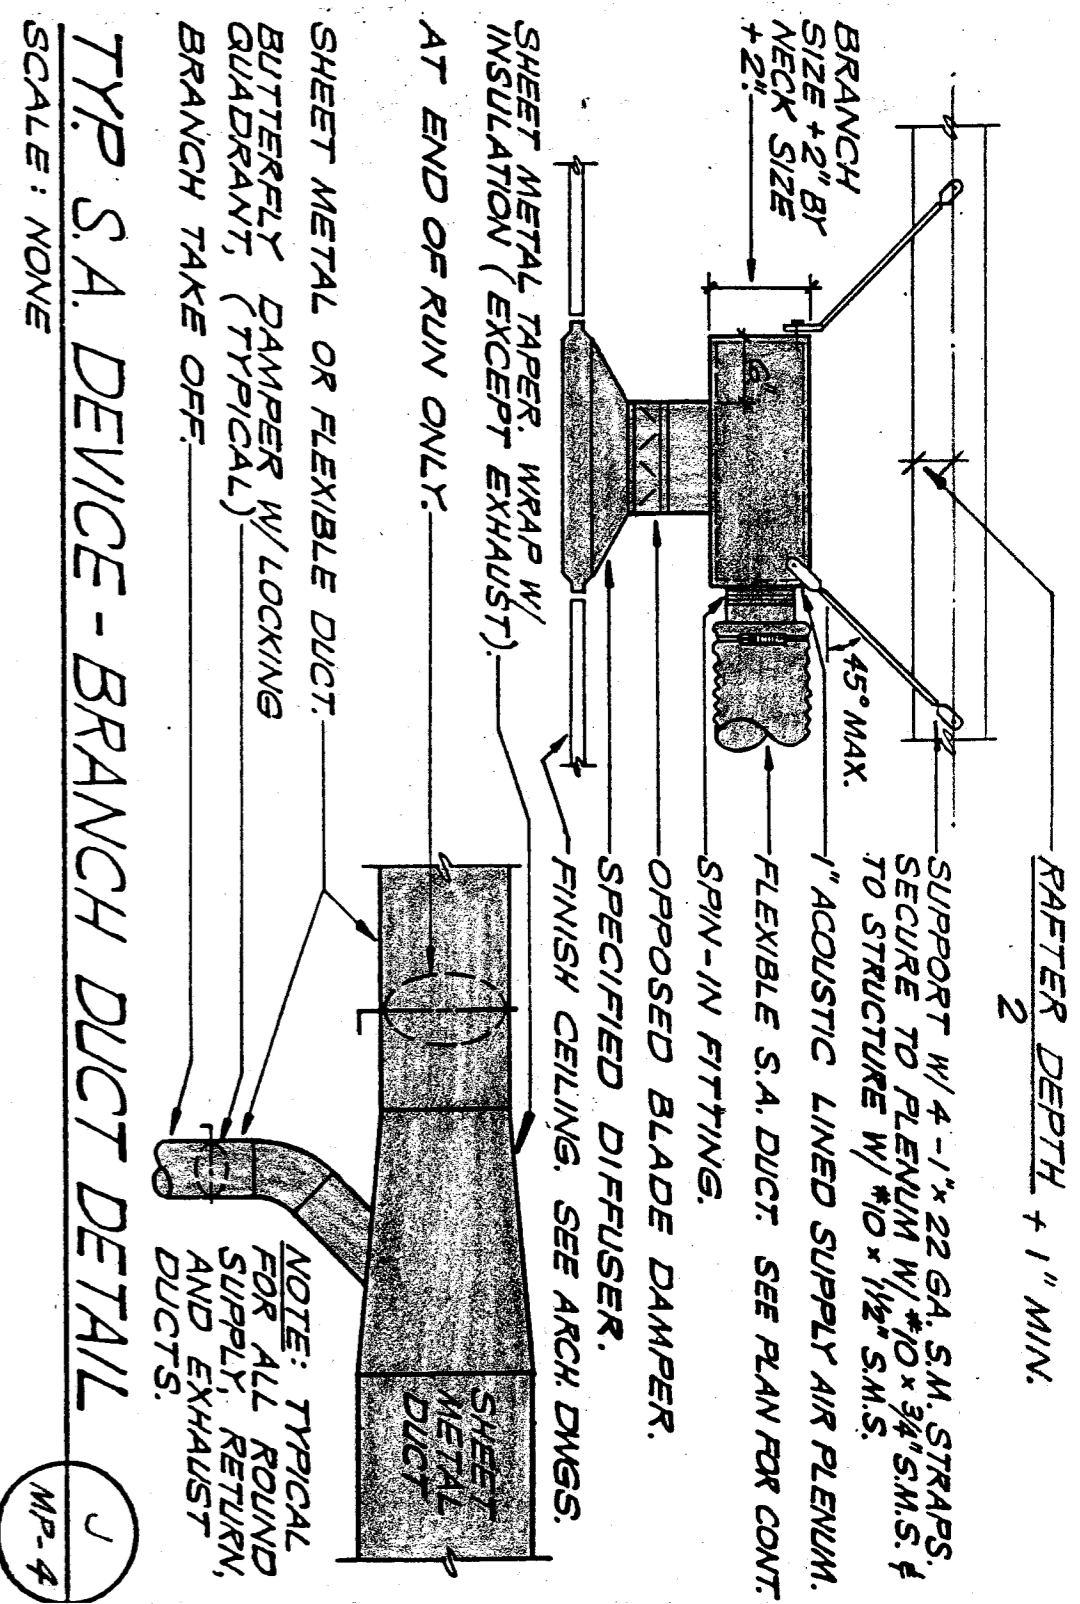 RAFTER DEPTH + 1" MIN.
2
SUPPORT W/ 4-1"x 22 GA. S.M. STRAPS.
SECURE TO PLENUM W/ #10 x 3/4" S.M.S. &
TO STRUCTURE W/ #10 x 1 1/2" S.M.S.
1" ACOUSTIC LINED SUPPLY AIR PLENUM.
FLEXIBLE S.A. DUCT. SEE PLAN FOR CONT.
SPIN-IN FITTING.
OPPOSED BLADE DAMPER.
SPECIFIED DIFFUSER.
FINISH CEILING. SEE ARCH. DWGS.
45° MAX.
6"
BRANCH
SIZE +2" BY
NECK SIZE
+2".
SHEET METAL TAPER. WRAP W/
INSULATION (EXCEPT EXHAUST).
AT END OF RUN ONLY.
SHEET METAL OR FLEXIBLE DUCT.
BUTTERFLY DAMPER W/ LOCKING
QUADRANT, (TYPICAL)
BRANCH TAKE OFF.
SHEET
METAL
DUCT
NOTE: TYPICAL
FOR ALL ROUND
SUPPLY, RETURN,
AND EXHAUST
DUCTS.
TYP. S.A. DEVICE - BRANCH DUCT DETAIL
SCALE: NONE
J
MP-4